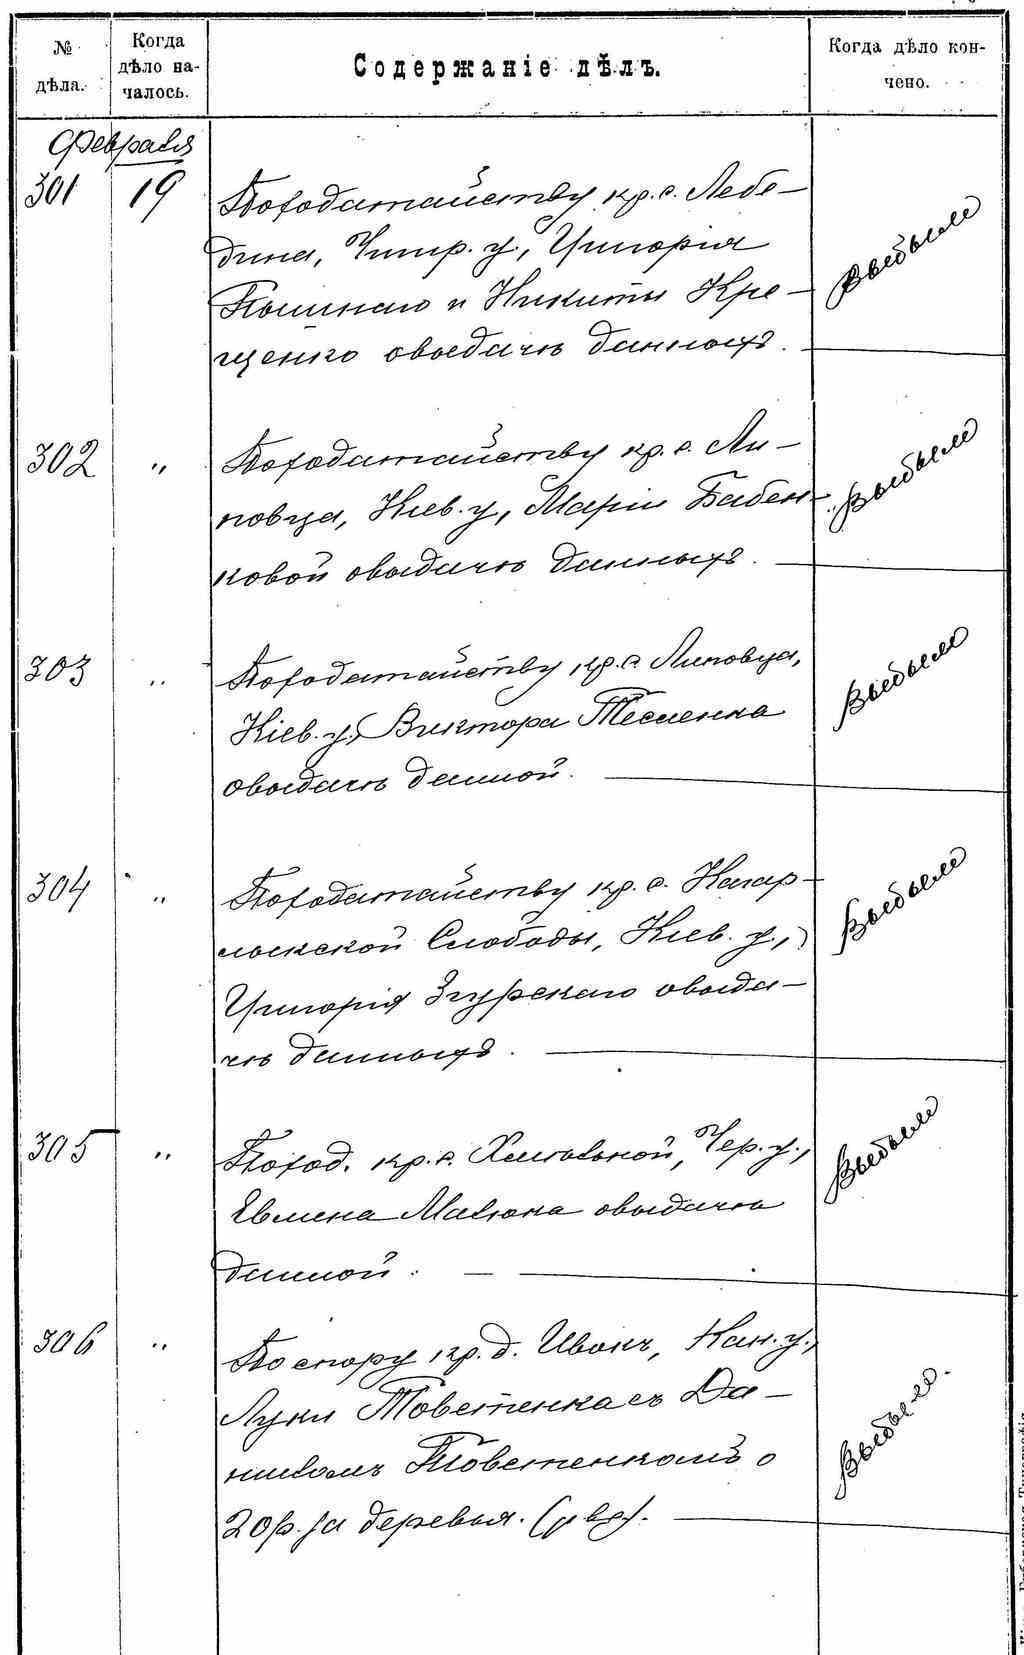 № дѣла.
Когда дѣло на-
чалось.
Содержаніе дѣлъ.
Когда дѣло кон-
чено.
Февраля
301 19 По ходатайству кр. с. Лебе-
дина, Чигир. у., Григорія
и Никиты Кре-
щенко о выдачѣ данныхъ.
Выбыло
302 " По ходатайству кр. с. Ли-
повца, Кіев. у., Маріи Бабен-
ковой о выдачѣ данныхъ.
Выбыло
303 " По ходатайству кр. с. Липовца,
Кіев. у., Виктора Тесленка
о выдачѣ данной.
Выбыло
304 " По ходатайству кр. с. Кагар-
лыкской Слободы, Кіев. у.,
Григорія Згурскаго о выда-
чѣ данныхъ.
Выбыло
305 " По ход. кр. с. Хмѣльной, Чер. у.,
Евмена Малюка о выдачѣ
данной.
Выбыло
306 " По спору кр. д. Ивонъ, Кан. у.,
Луки Товстенка съ Да-
ниломъ Товстенкомъ о
20 р. за деревья.
Выбыло.